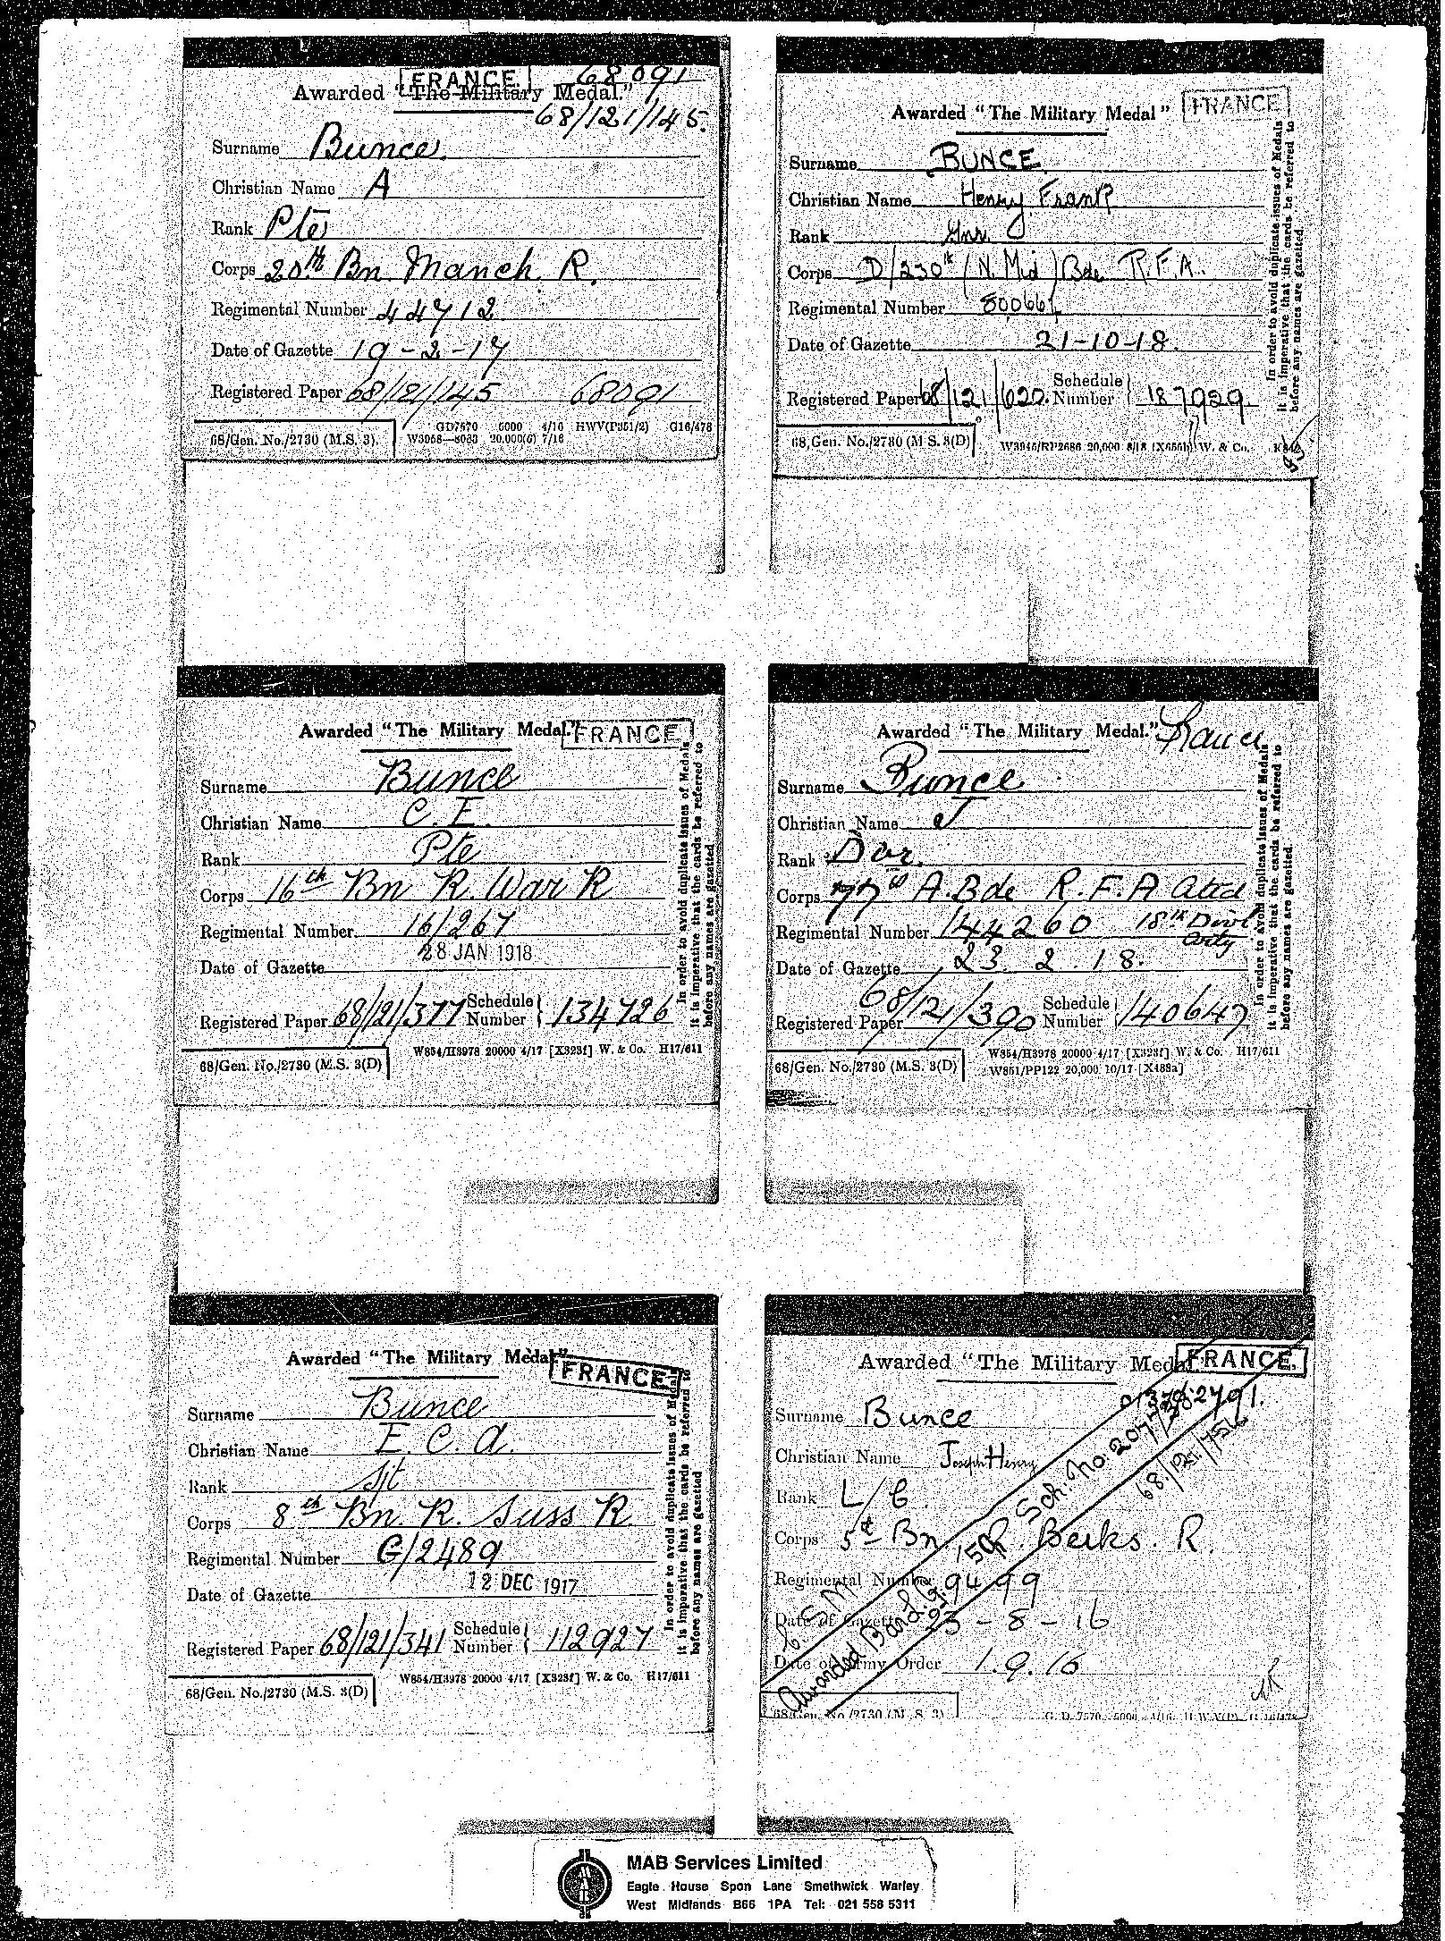 FRANCE 68091
Awarded "The Military Medal."
68/121/145.
Surname Bunce.
Christian Name A
Rank Pte
Corps 20th Bn Manch. R.
Regimental Number 44712
Date of Gazette 19-2-17
Registered Paper 68/121/145 68091
68/Gen. No./2730 (M.S. 3).
GD7570 5000 4/16 HWV(P351/2) G16/478
20,000(6) 7/16
Awarded "The Military Medal" FRANCE
Surname BUNCE.
Christian Name Henry Frank
Rank Gnr.
Corps D/230th (N. Mid) Bde R.F.A.
Regimental Number
Date of Gazette 21-10-18.
Registered Paper 68/121/620. Schedule Number 187929.
68/Gen. No./2730 (M.S. 3(D)
W3946/RP2686 20,000 8/18 W. & Co.
In order to avoid duplicate issues of Medals
it is imperative that the cards be referred to
before any names are gazetted.
Awarded "The Military Medal." FRANCE
Surname Bunce
Christian Name C. E.
Rank Pte
Corps 16th Bn R. War R
Regimental Number 16/267
Date of Gazette 28 JAN 1918
Registered Paper 68/121/377 Schedule Number 134726
68/Gen. No./2730 (M.S. 3(D)
W854/H3978 20000 4/17 [X323f] W. & Co. H17/611
In order to avoid duplicate issues of Medals
it is imperative that the cards be referred to
before any names are gazetted.
Awarded "The Military Medal." France
Surname Bunce
Christian Name J
Rank Dvr.
Corps A. Bde R.F.A attd
Regimental Number 144260 18th Divl Arty
Date of Gazette 23. 2. 18.
Registered Paper 68/121/390 Schedule Number 140647
68/Gen. No./2730 (M.S. 3(D)
W854/H3978 20000 4/17 [X323f] W. & Co. H17/611
W851/PP122 20,000 10/17 [X488a]
In order to avoid duplicate issues of Medals
it is imperative that the cards be referred to
before any names are gazetted.
Awarded "The Military Medal" FRANCE
Surname Bunce
Christian Name E. C. A.
Rank Sjt
Corps 8th Bn R. Suss R
Regimental Number G/2489
Date of Gazette 12 DEC 1917
Registered Paper 68/121/341 Schedule Number 112927
68/Gen. No./2730 (M.S. 3(D)
W854/H3978 20000 4/17 [X323f] W. & Co. H17/611
In order to avoid duplicate issues of Medals
it is imperative that the cards be referred to
before any names are gazetted
Awarded "The Military Medal FRANCE.
Surname Bunce
Christian Name Joseph Henry
Rank L/C.
Corps 5th Bn R. Berks. R.
Regimental Number 9499
Date of Gazette 23-8-16
Date of Army Order 1.9.16
Awarded Bar
Sch. No.
68/121/756
68/Gen. No./2730 (M.S. 3)
MAB Services Limited
Eagle House Spon Lane Smethwick Warley
West Midlands B66 1PA Tel: 021 558 5311